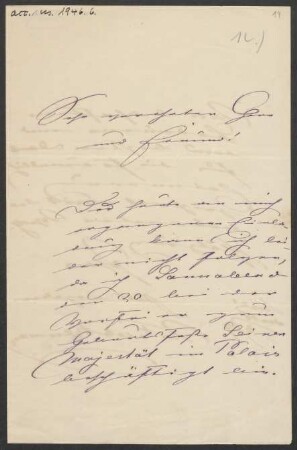 acc. ms. 1946.6.
12.)
Sehr verehrter Herr
und Freund!
Der heute an mich
ergangenen Einla-
dung kann ich lei-
der nicht folgen,
da ich Sonnabend
den 20 bei der
Vorfeier zum
Geburtsfeste Seiner
Majestät im Palais
beschäftigt bin.